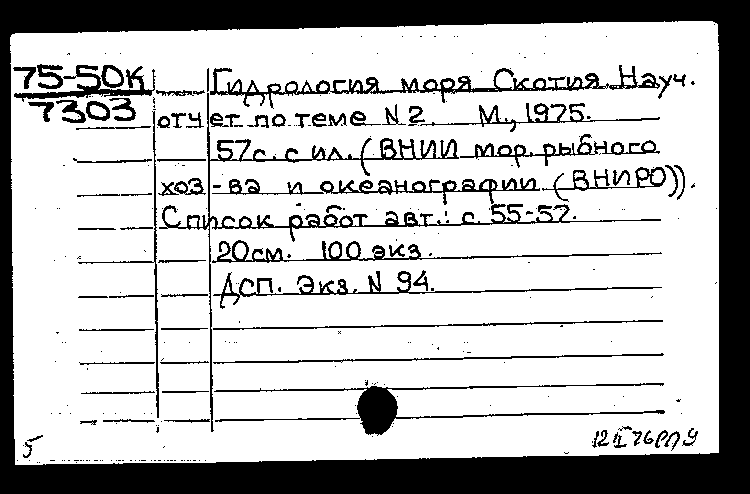 75-50К
7303
Гидрология моря Скотия. Науч.
отчет по теме N 2. М., 1975.
57с. с ил. (ВНИИ мор. рыбного
хоз-ва и океанографии (ВНИРО)).
Список работ авт.: с. 55-57.
20см. 100 экз.
ДСП. Экз. N 94.
5